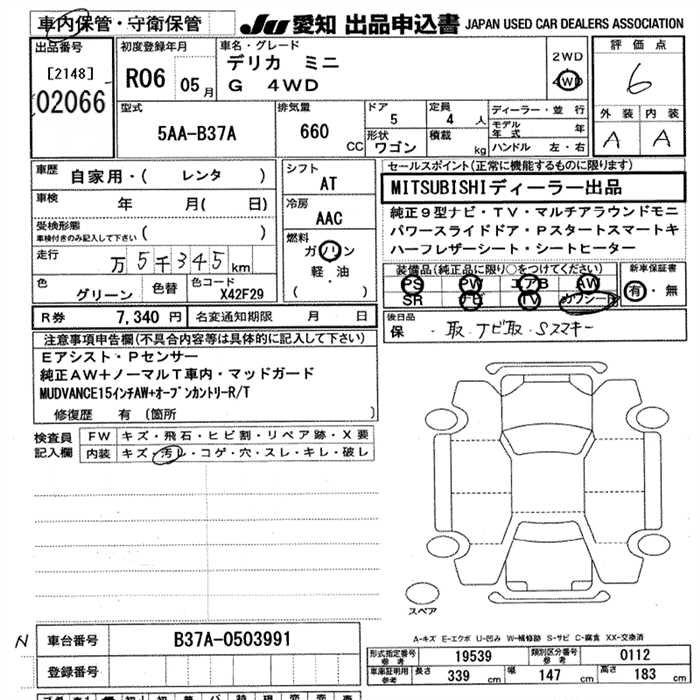 車内保管・守衛保管 JU 愛知 出品申込書 JAPAN USED CAR DEALERS ASSOCIATION
出品番号 [2148] 02066
初度登録年月 R06 05月
車名・グレード デリカ ミニ
G 4WD
2WD
4WD
評価点 6
外装 A 内装 A
型式 5AA-B37A
排気量 660 CC
ドア 5 定員 4人
形状 ワゴン 積載 kg
ディーラー・並行
モデル年式 年
ハンドル 左・右
車歴 自家用・( レンタ )
車検 年 月( 日)
受検形態 車検付きのみ記入して下さい ( )
走行 万5千345km
色 グリーン 色替 色コード X42F29
シフト AT
冷房 AAC
燃料 ガソリン
軽・油
( )
セールスポイント(正常に機能するものに限ります)
MITSUBISHIディーラー出品
純正9型ナビ・TV・マルチアラウンドモニ
パワースライドドア・Pスタートスマートキ
ハーフレザーシート・シートヒーター
装備品(純正品に限り○をつけてください) 新車保証書
PS PW エアB AW 有・無
SR ナビ TV カワシート
R券 7,340円 名変通知期限 月 日
後日品
保 ・取、ナビ取・Sスマキー
注意事項申告欄(不具合内容等は具体的に記入して下さい)
Eアシスト・Pセンサー
純正AW+ノーマルT車内・マッドガード
MUDVANCE15インチAW+オープンカントリーR/T
修復歴 有 (箇所 )
検査員記入欄 FW キズ・飛石・ヒビ割・リペア跡・X要
内装 キズ・汚レ・コゲ・穴・スレ・キレ・破レ
スペア
A-キズ E-エクボ U-凹み W-補修跡 S-サビ C-腐食 XX-交換済
N 車台番号 B37A-0503991
登録番号
形式指定番号 参考 19539 類別区分番号 参考 0112
車庫証明用 参考 長さ 339 cm 幅 147 cm 高さ 183 cm